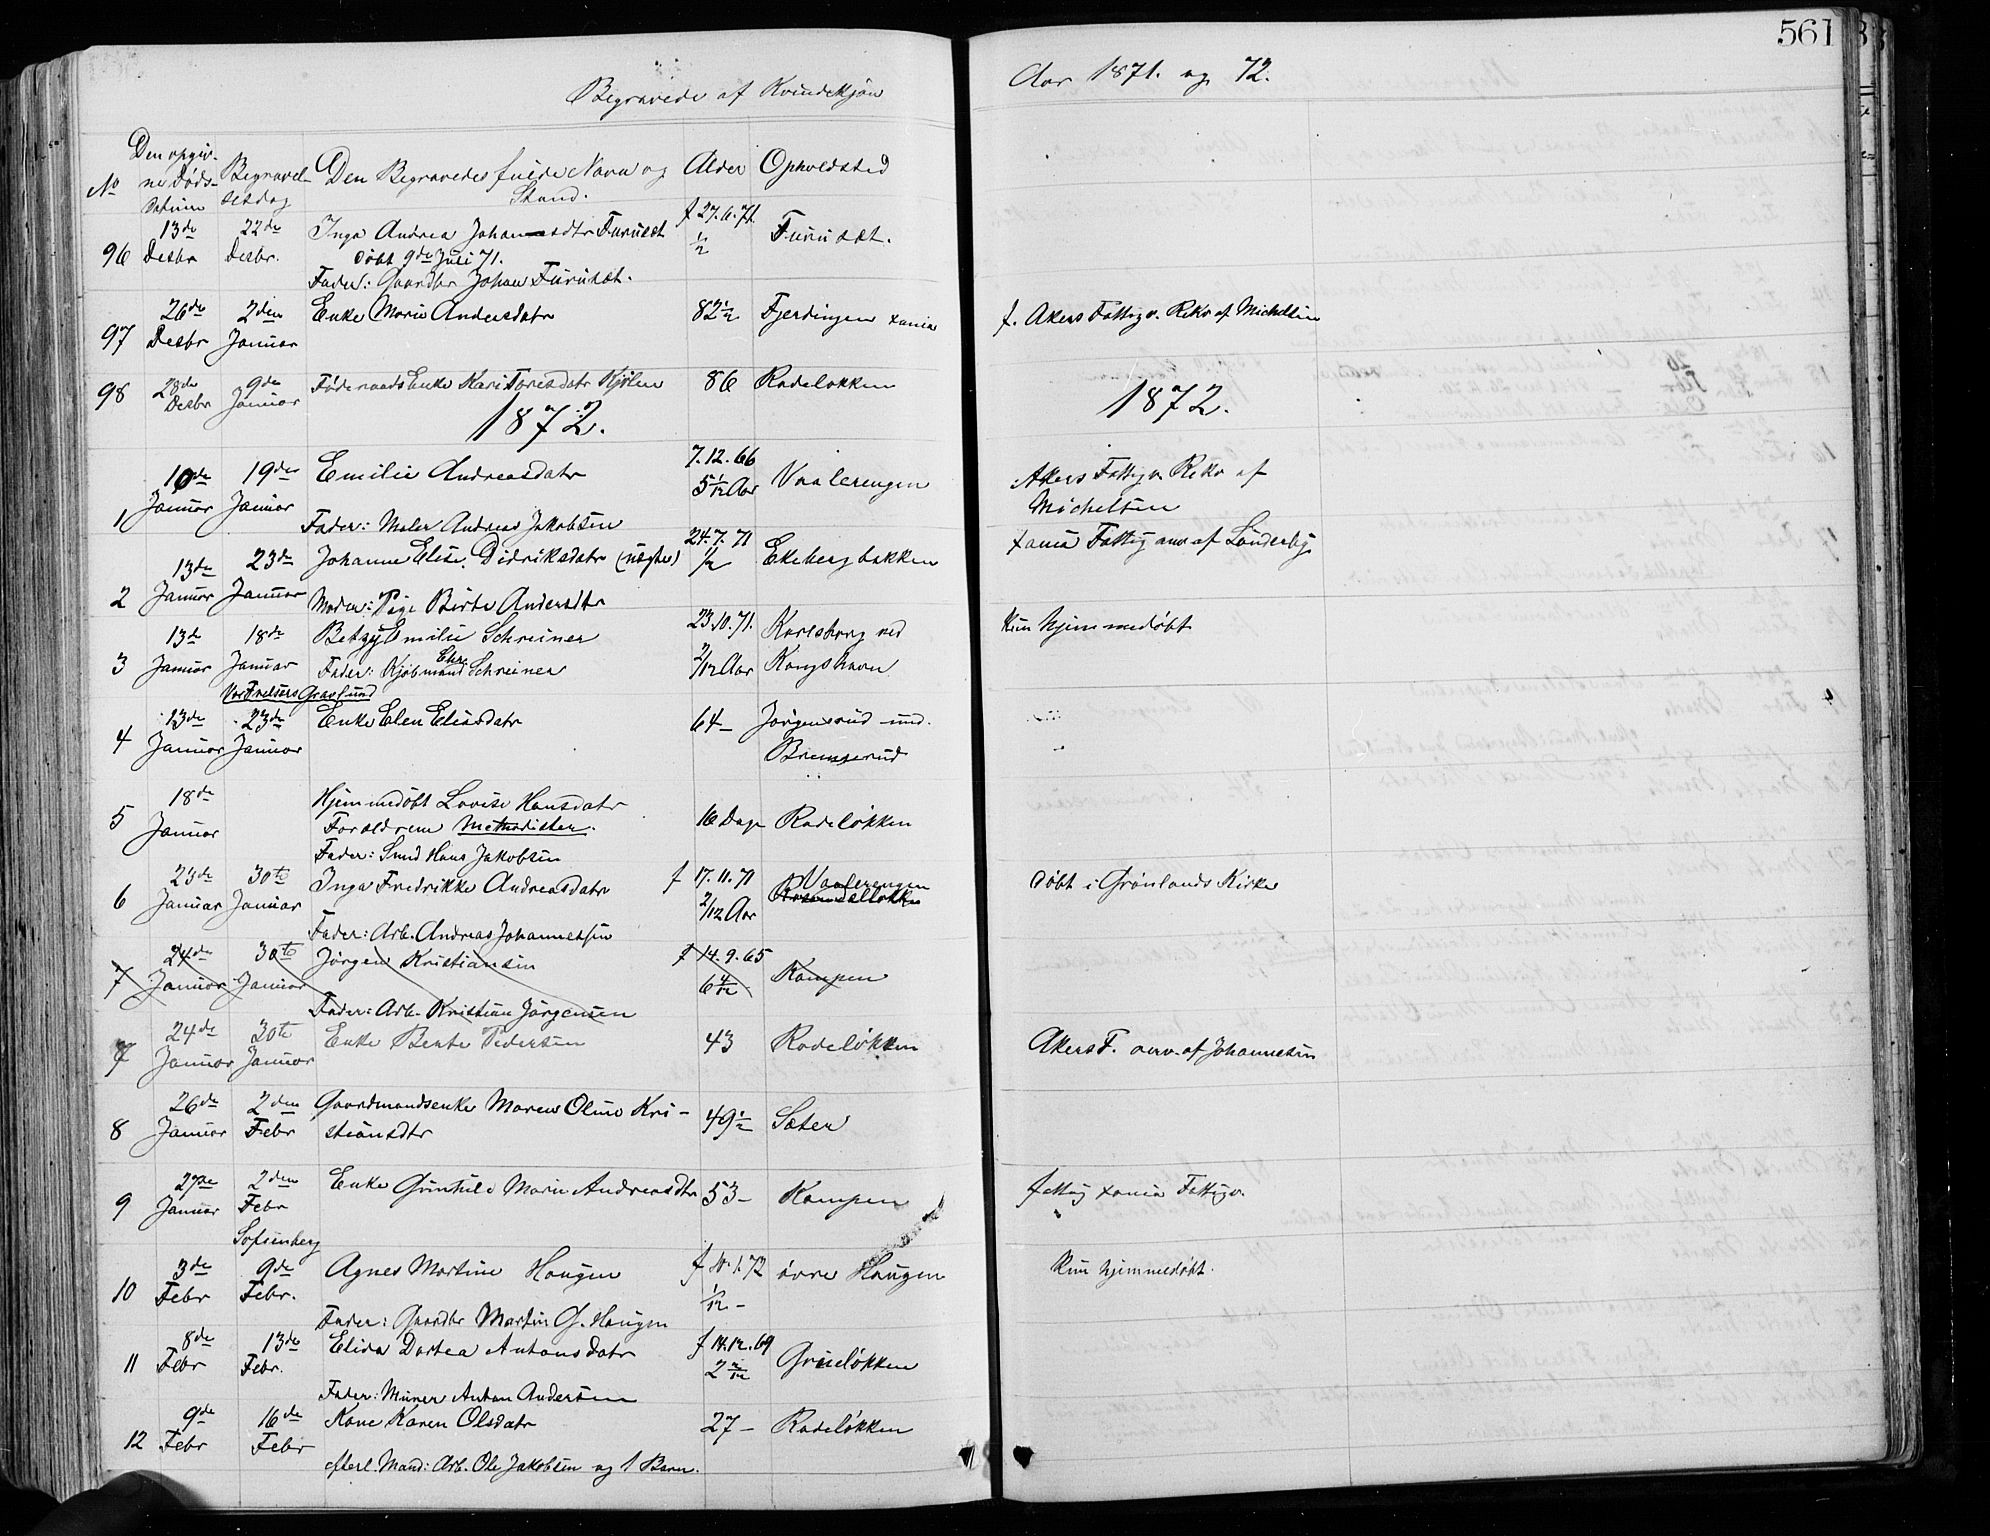 561
Begravede af Kvindekjøn
Aar 1871. og 72.
No
Den opgiv-
ne Døds-
datum
Begravel-
sesdag
Den Begravedes fulde Navn og
Stand.
Alder
Opholdsted
96 13de Desbr 22de Desbr. Inga Andrea Johansdtr Furuset f 27.6.71. 1/2 Furuset.
døbt 9de Juli 71.
Fader: Gaardbr Johan Furuset.
97 26de Desbr 2den Januar Enke Marie Andersdatr 82 1/2 Fjerdingen Xania f. Akers Fattigv. Rekv af Michelsen
98 28de Desbr 9de Januar Føderaads Enke Kari Toresdatr Kjølen 86 Rodeløkken
1872. 1872.
1 10de Januar 19de Januar Emilie Andreasdatr 7.12.66 5 1/12 Aar Vaalerengen Akers Fattigv Rekv af
Michelsen
Fader: Maler Andreas Jakobsen
2 13de Januar 23de Januar Johanne Elise Didriksdatr (uægte) 24.7.71 1/2 Ekebergbakken Xania Fattig anv af Sønderby
Moder: Pige Birte Andersdtr
3 13de Januar 18de Januar Betzy Emilie Schreiner 23.10.71. 2/12 Aar Karlsborg ved
Kongshavn Kun hjemmedøbt
Fader: Kjøbmand Chr. Schreiner
Vor Frelsers Gravlund
4 13de Januar 23de Januar Enke Elen Eliasdatr 64 Jørgensrud und.
Bremsrud
5 18de Januar Hjemmedøbt Lovise Hansdatr 16 Dage Rodeløkken
Forældrene Methodister.
Fader: Smed Hans Jakobsen
6 23de Januar 30te Januar Inga Fredrikke Andreasdatr f 17.11.71 2/12 Aar Vaalerengen døbt i Grønlands Kirke
Fader: Arb. Andreas Johannessen
7 24de Januar 30te Januar Jørgen Kristiansen f 14.9.65 6 4/12 Kampen
Fader: Arb. Kristian Jørgensen
7 24de Januar 30te Januar Enke Bente Pedersen 43 Rodeløkken Akers F. anv. af Johannesen
8 26de Januar 2den Febr Gaardmandsenke Maren Oline Kri-
stiansdtr 49 1/2 Sæter
9 27de Januar 2den Febr Enke Gunhild Marie Andreasdtr 53 Kampen fattig Xania Fattigv.
Sofienberg
10 3de Febr 9de Febr. Agnes Martine Haugen f 10.1.72 1/12 øvre Haugen Kun hjemmedøbt.
Fader: Gaardbr Martin G. Haugen
11 8de Febr 13de Febr. Elida Dortea Antonsdatr f 14.12.69 2 2/12 Grueløkken
Fader: Murer Anton Andersen
12 9de Febr 16de Febr Kone Karen Olsdatr 27 Rodeløkken
efterl. Mand: Arb. Ole Jakobsen og 1 Barn.